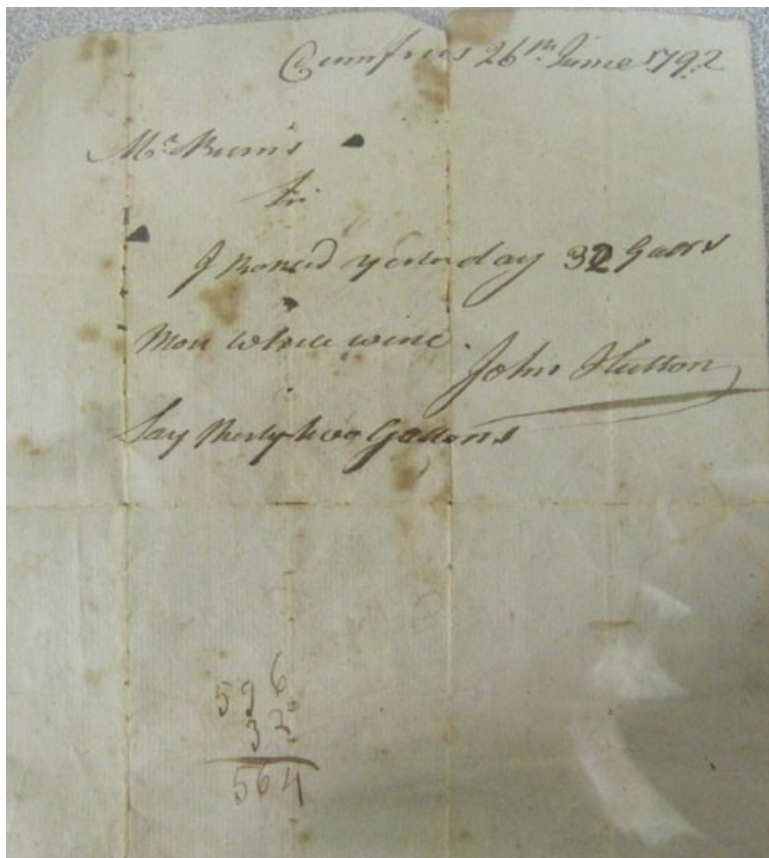 Dumfries 26th June 1792
Mr. Burns
Sir
I Received yesterday 32 Gallons
More white wine.
John Hutton
Say Thirty two Gallons
596
32
564